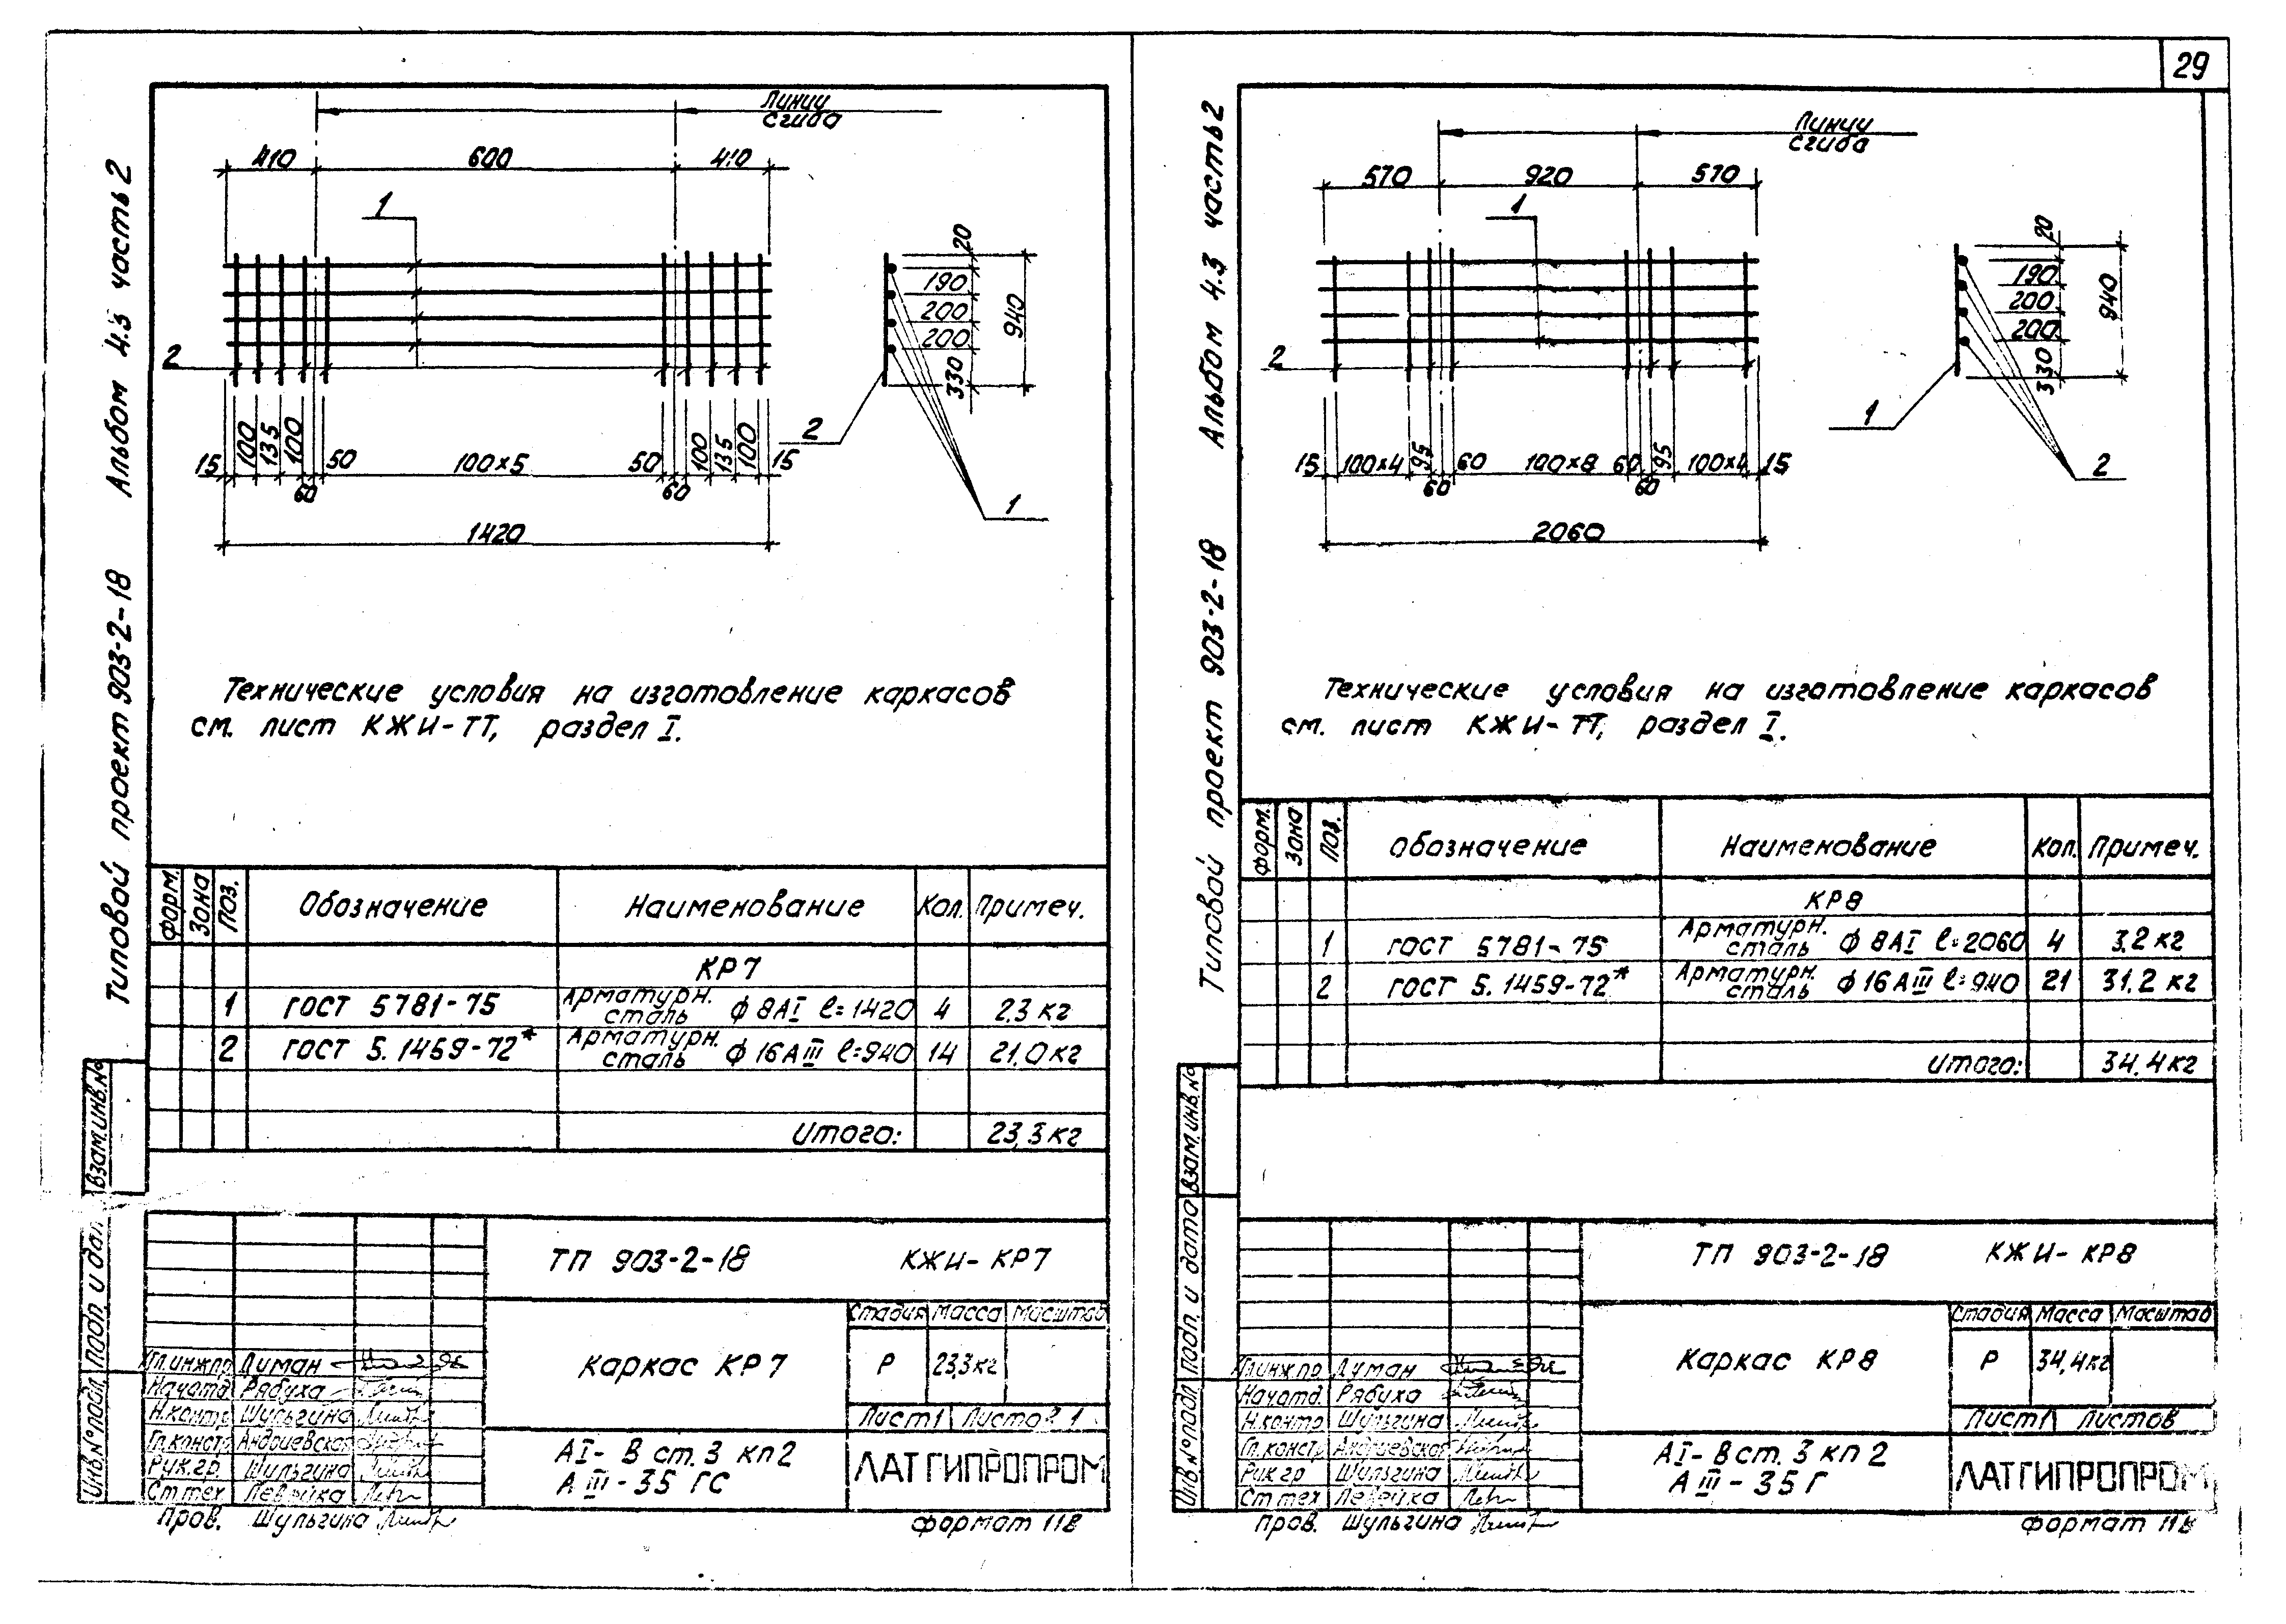 29
Типовой проект 903-2-18 Альбом 4.3 часть 2
Линии
сгиба
410 600 410
1
2
20
190
200
200
330
940
2
1
15 100 135 100 60 50 100×5 50 60 100 135 100 15
1420
Технические условия на изготовление каркасов
см. лист КЖИ-ТТ, раздел I.
форм. Зона Поз. Обозначение Наименование Кол. Примеч.
КР7
1 ГОСТ 5781-75 Арматурн. сталь ф 8АI ℓ=1420 4 2.3 кг
2 ГОСТ 5.1459-72* Арматурн. сталь ф 16АIII ℓ=940 14 21,0 кг
Итого: 23,3 кг
Взам.инв.№
Подп. и дат
Инв.№ подл
ТП 903-2-18 КЖИ-КР7
Каркас КР7
Стадия Масса Масштаб
Р 23,3кг
Лист 1 Листов 1
АI- В ст. 3 кп 2
А III - 35 ГС
ЛАТГИПРОПРОМ
Гл.инж.пр Думан
Нач.отд. Рябуха
Н.контр Шульгина
Гл.констр Андриевская
Рук.гр. Шульгина
Ст.тех Левейка
Пров. Шульгина
формат 11В
Типовой проект 903-2-18 Альбом 4.3 часть 2
Линии
сгиба
570 920 570
1
2
20
190
200
200
330
940
1
2
15 100×4 95 60 60 100×8 60 60 95 100×4 15
2060
Технические условия на изготовление каркасов
см. лист КЖИ-ТТ, раздел I.
форм. Зона Поз. Обозначение Наименование Кол. Примеч.
КР8
1 ГОСТ 5781-75 Арматурн. сталь ф 8АI ℓ=2060 4 3.2 кг
2 ГОСТ 5.1459-72* Арматурн. сталь ф 16АIII ℓ=940 21 31.2 кг
Итого: 34.4 кг
Взам.инв.№
Подп. и дата
Инв.№ подл
ТП 903-2-18 КЖИ- КР8
Каркас КР8
Стадия Масса Масштаб
Р 34,4кг
Лист 1 Листов
АI- В ст. 3 кп 2
А III - 35 Г
ЛАТГИПРОПРОМ
Гл.инж.пр. Думан
Нач.отд. Рябуха
Н.контр Шульгина
Гл.констр Андриевская
Рук.гр Шульгина
Ст.тех Левейка
Пров. Шульгина
формат 11В